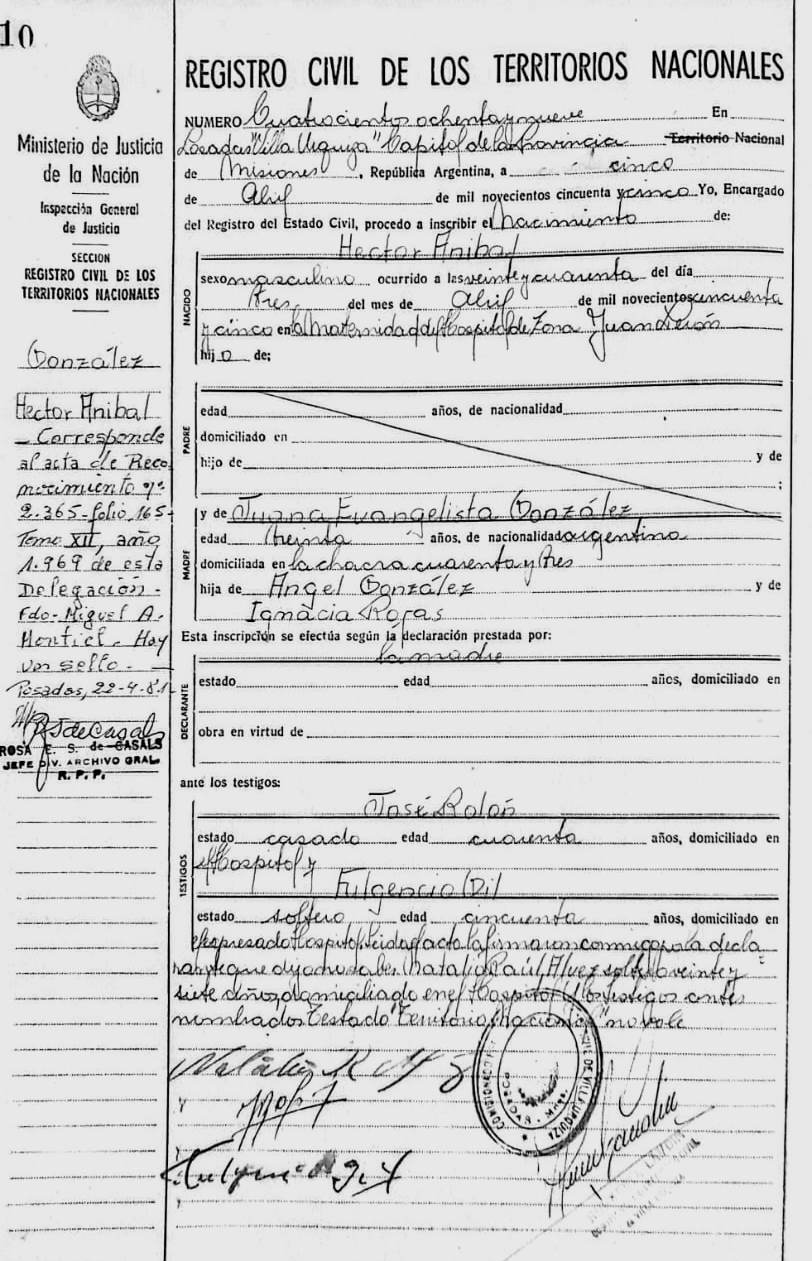 10
Ministerio de Justicia
de la Nación
Inspección General
de Justicia
SECCION
REGISTRO CIVIL DE LOS
TERRITORIOS NACIONALES
González
Hector Anibal
Corresponde
al acta de Reco
nocimiento nº
2.365-folio 165-
Tomo XII, año
1.969 de esta
Delegación-
Fdo-Miguel A.
Montiel. Hay
un sello.-
Posadas, 22-4-81
ROSA E. S. de CASALS
JEFE DIV. ARCHIVO GRAL.
R. P. P.
REGISTRO CIVIL DE LOS TERRITORIOS NACIONALES
NUMERO Cuatrocientos ochenta y nueve En
Posadas "Villa Urquiza" Capital de la Provincia Territorio Nacional
de Misiones, República Argentina, a cinco
de Abril de mil novecientos cincuenta y cinco Yo, Encargado
del Registro del Estado Civil, procedo a inscribir el Nacimiento de:
NACIDO
Hector Anibal
sexo masculino ocurrido a las veinte y cuarenta del día
tres, del mes de Abril de mil novecientos cincuenta
y cinco en la Maternidad del Hospital de Zona Juan Perón
hijo de;
PADRE
edad años, de nacionalidad
domiciliado en
hijo de y de
;
MADRE
y de Juana Evangelista González
edad treinta años, de nacionalidad argentina
domiciliada en la chacra cuarenta y tres
hija de Angel González y de
Ignacia Rojas
Esta inscripción se efectúa según la declaración prestada por:
DECLARANTE
la madre
estado edad años, domiciliado en
obra en virtud de
ante los testigos:
TESTIGOS
José Rolón
estado casado edad cuarenta años, domiciliado en
el Hospital y
Fulgencio Dil
estado soltero edad cincuenta años, domiciliado en
el expresado Hospital leida el acta la firmaron conmigo por la decla
rante que dijo no saber Natalio Raúl Alvez soltero veinte y
siete años domiciliado en el Hospital y los testigos antes
nombrados Testado "Territorio Nacional" no vale
DE VILLA URQUIZA
POSADAS